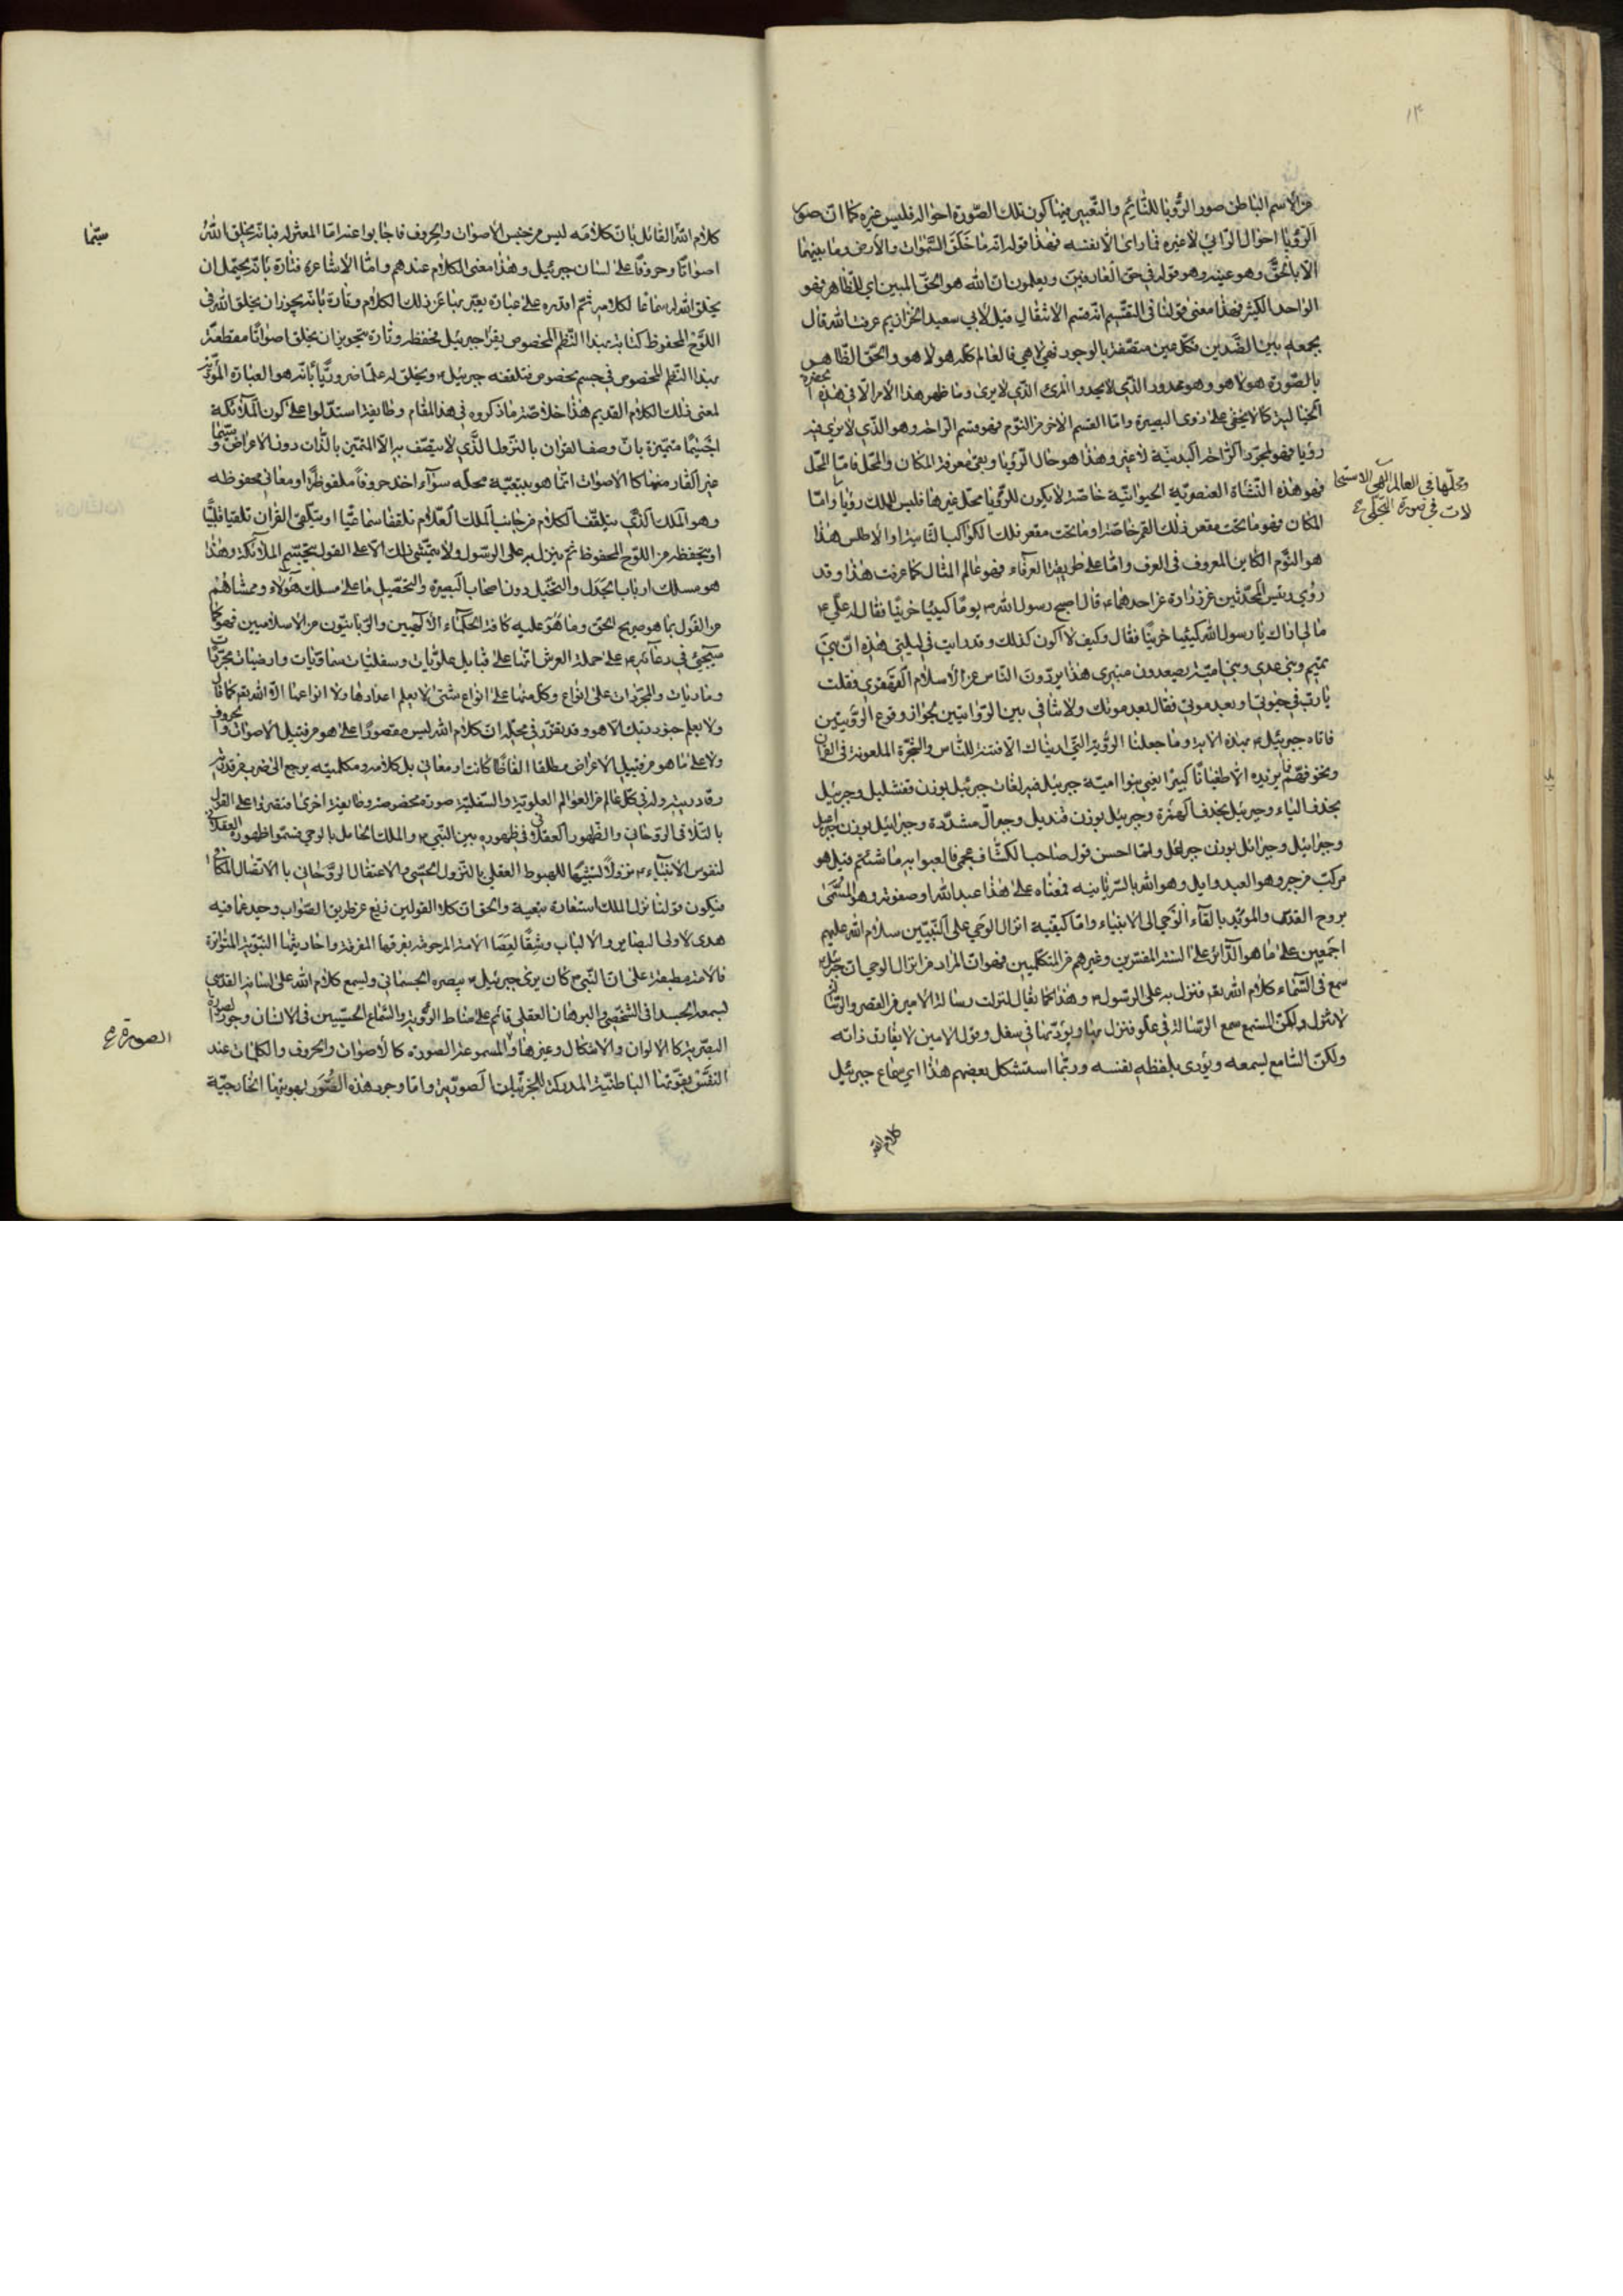 من الاسم الباطن صور الرؤيا للنائم والتعبير فيها كون تلك الصورة احواله فليس غيره كما ان صور
الرؤيا احوال الرائي لا غيره فما راى الا نفسه فهذا قوله انه ما خلق السموات والأرض وما بينهما
الا بالحق وهو عينه وهو قوله في حق العارفين ويعلمون ان الله هو الحق المبين اي الظاهر فهو
الواحد الكثير فهذا معنى قولنا في التقسيم انه قسم الانتقال قيل لأبي سعيد الخراز بم عرفت الله قال
بجمعه بين الضدين فكل عين متصفة بالوجود فهي لا هي فالعالم كله هو لا هو والحق الظاهر
بالصورة هو لا هو وهو محدود الذي لا يحد والمرئ الذي لا يرى وما ظهر هذا الأمر الا في هذه الحضرة
الخيالية كما لا يخفى على ذوى البصيرة واما القسم الآخر من النوم فهو قسم الراحة وهو الذي لا يرى فيه
رؤيا فهو لمجرد الراحة البدنية لا غير وهذا هو حال الرؤيا وبقي معرفة المكان والمحل فاما المحل
فهو هذه النشاة العنصرية الحيوانية خاصة لا يكون للرؤيا محل غيرها فليس للملك رؤيا واما
ومحلها في العالم الالهي الاستحا
لات في صورة التجلي
المكان فهو ما تحت مقعر فلك القمر خاصة او ما تحت مقعر فلك الكواكب الثابتة او الأطلس هذا
هو النوم الكاين المعروف في العرف واما على طريقة العرفاء فهو عالم المثال كما عرفت هذا وقد
روي رئيس المحدثين عن زرارة عن احدهما قال اصبح رسول الله يوما كئيبا حزينا فقال له علي
ما لي اراك يا رسول الله كئيبا حزينا فقال وكيف لا اكون كذلك وقد رايت في ليلتي هذه ان بني
تيم وبني عدي وبني امية يصعدون منبري هذا يردون الناس عن الاسلام القهقرى فقلت
يا رب في حيوتي او بعد موتي فقال بعد موتك ولا تنافي بين الروايتين لجواز وقوع الرؤيتين
فاتاه جبرئيل بهذه الاية وما جعلنا الرؤية التي اريناك الا فتنة للناس والشجرة الملعونة في القران
ونخوفهم فما يزيدهم الا طغيانا كبيرا يعني بنوا امية جبرئيل فيه لغات جبرئيل بوزن قفشليل وجبرئل
بحذف الياء وجبريل بحذف الهمزة وجبريل بوزن قنديل وجبرال مشددة وجبرائيل بوزن
وجبرائل بوزن جبراعل ولما احسن قول صاحب الكشاف عجمي فالعبوا به ما شئتم قيل هو
مركب من جبر وهو العبد وايل وهو الله بالسريانية فمعناه على هذا عبد الله او صفوته وهو المسمى
بروح القدس والموئد بالقاء الوحي الى الانبياء واما كيفية انزال الوحي على النبيين سلام الله عليهم
اجمعين على ما هو الدائر على السنة المفسرين وغيرهم من المتكلمين فهو ان المراد من انزال الوحي ان جبرئيل
سمع في السماء كلام الله فنزل به على الرسول وهذا كما يقال نزلت رسالة الامير من القصر والرسالة
لا تنزل ولكن المستمع سمع الرسالة في علو فنزل بها ويؤديها في سفل وقول الامير لا يفارق ذاته
ولكن السامع يسمعه ويؤدى بلفظه بنفسه وربما استشكل بعضهم هذا اي سماع جبرئيل
كلام الله
كلام الله القائل بان كلامه ليس من جنس الأصوات والحروف فاجابوا عنه اما المعتزلة فبانه يخلق الله
سيما
اصواتا وحروفا على لسان جبرئيل وهذا معنى الكلام عندهم واما الأشاعرة فتارة بانه يحتمل ان
يخلق الله له سماعا لكلامه ثم اقدره على عبارة يعبر بها عن ذلك الكلام وتارة بانه يجوز ان يخلق الله في
اللوح المحفوظ كتابة بهذا النظم المخصوص يقرا جبرئيل فحفظه وتارة بتجويز ان يخلق اصواتا مقطعة
بهذا النظم المخصوص في جسم مخصوص فتلقفه جبرئيل ويخلق له علما ضروريا بانه هو العبارة المؤدية
لمعنى ذلك الكلام القديم هذا خلاصة ما ذكروه في هذا المقام وطايفة استدلوا على كون الملائكة
اجساما متميزة بان وصف القران بالنزول الذي لا يتصف به الا المتميز بالذات دون الاعراض وسيما
غير القار منها كالأصوات انما هو بتبعية محله سوآء اخذ حروفا ملفوظة او معاني محفوظه
وهو الملك الذي يتلقف الكلام من جانب الملك العلام تلقفا سماعيا او يتلقى القران تلقيا قلبيا
او يحفظه من اللوح المحفوظ ثم ينزل به على الرسول ولا يتمشى ذلك الا على القول بتجسم الملائكة وهذا
هو مسلك ارباب الجدل والتخييل دون اصحاب البصيرة والتحصيل ما على مسلك هؤلاء وممشاهم
من القول بما هو صريح الحق وما هو عليه كافة الحكماء الالهيين والربانيون من الاسلاميين فهو كما
سيجئ في دعائه على حملة العرش انها على قبايل علويات وسفليات سماويات وارضيات مجردات
وماديات والمجردات على انواع وكل منها على انواع شتى لا يعلم اعدادها ولا انواعها الا الله كما قال
ولا يعلم جنود ربك الا هو وقد تقرر في محله ان كلام الله ليس مقصورا على ما هو من قبيل الأصوات والحروف
ولا على ما هو من قبيل الأعراض مطلقا الفاظا كانت او معاني بل كلامه ومكلميته يرجع الى ضرب من قدرته
وقادريته وله في كل عالم من العوالم العلوية والسفلية صورة مخصوصة وطايفة اخرى اقتصروا على القول
بالتلاقي الروحاني والظهور العقلاني في ظهوره بين النبي والملك الحامل بالوحي فسموا ظهوره العقلاني
لنفوس الانبياء نزولا تشبيها للهبوط العقلي بالنزول الحسي والاعتقال الروحاني بالاتصال المكاني
فيكون قولنا نزل الملك استعارة تبعية والحق ان كلا القولين زيغ عن طريق الصواب وحيد عما فيه
هدى لاولى البصاير والالباب وشقا لعصا الامة المرحومة بفرقها المفرقة واحاديثها النبوية المتواترة
فالامة مطبقة على ان النبي كان يرى جبرئيل ببصره الجسماني ويسمع كلام الله على لسانه القدسي
لسمعه الجسداني الشخصي والبرهان العقلي قائم على مناط الرؤية والسماع الحسيين في الانسان وجود الصورة
الصورة
البصرية كالالوان والاشكال وغيرها والمسموعة الصورة كالأصوات والحروف والكلمات عند
النفس بقوتها الباطنية المدركة للجزئيات الصورية واما وجود هذه الصور بهويتها الخارجية